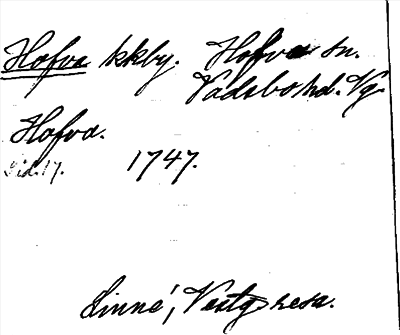 Hofva kkby. Hofva sn.
Vadsbo hd. Vg.
Hofva.
Sid. 17. 1747.
Linné, Vestg. resa.